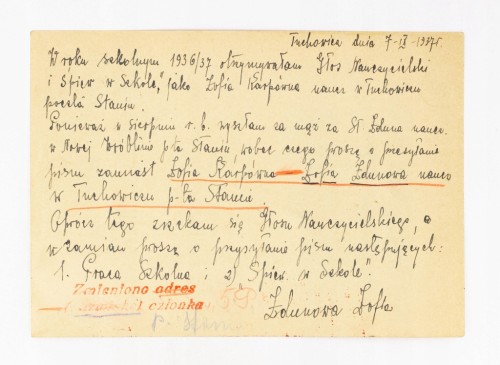 Tuchowicz dnia 7-IX-1937r.
W roku szkolnym 1936/37 otrzymywałam Głos Nauczycielski
i Śpiew w Szkole," jako Zofia Karpówna naucz w Tuchowiczu
poczta Stanin.
Ponieważ w sierpniu r. b. wyszłam za mąż za St. Zduna naucz.
w Nowej Wróblinie p-ta Stanin, wobec czego proszę o przesyłanie
pism zamiast Zofia Karpówna – Zofia Zdunowa naucz
w Tuchowiczu p-ta Stanin.
Oprócz tego zrzekam się Głosu Nauczycielskiego, a
w zamian proszę o przysyłanie pism następujących:
1. Praca Szkolna i 2) Śpiew w Szkole".
Zmieniono adres
członka
Zdunowa Zofia